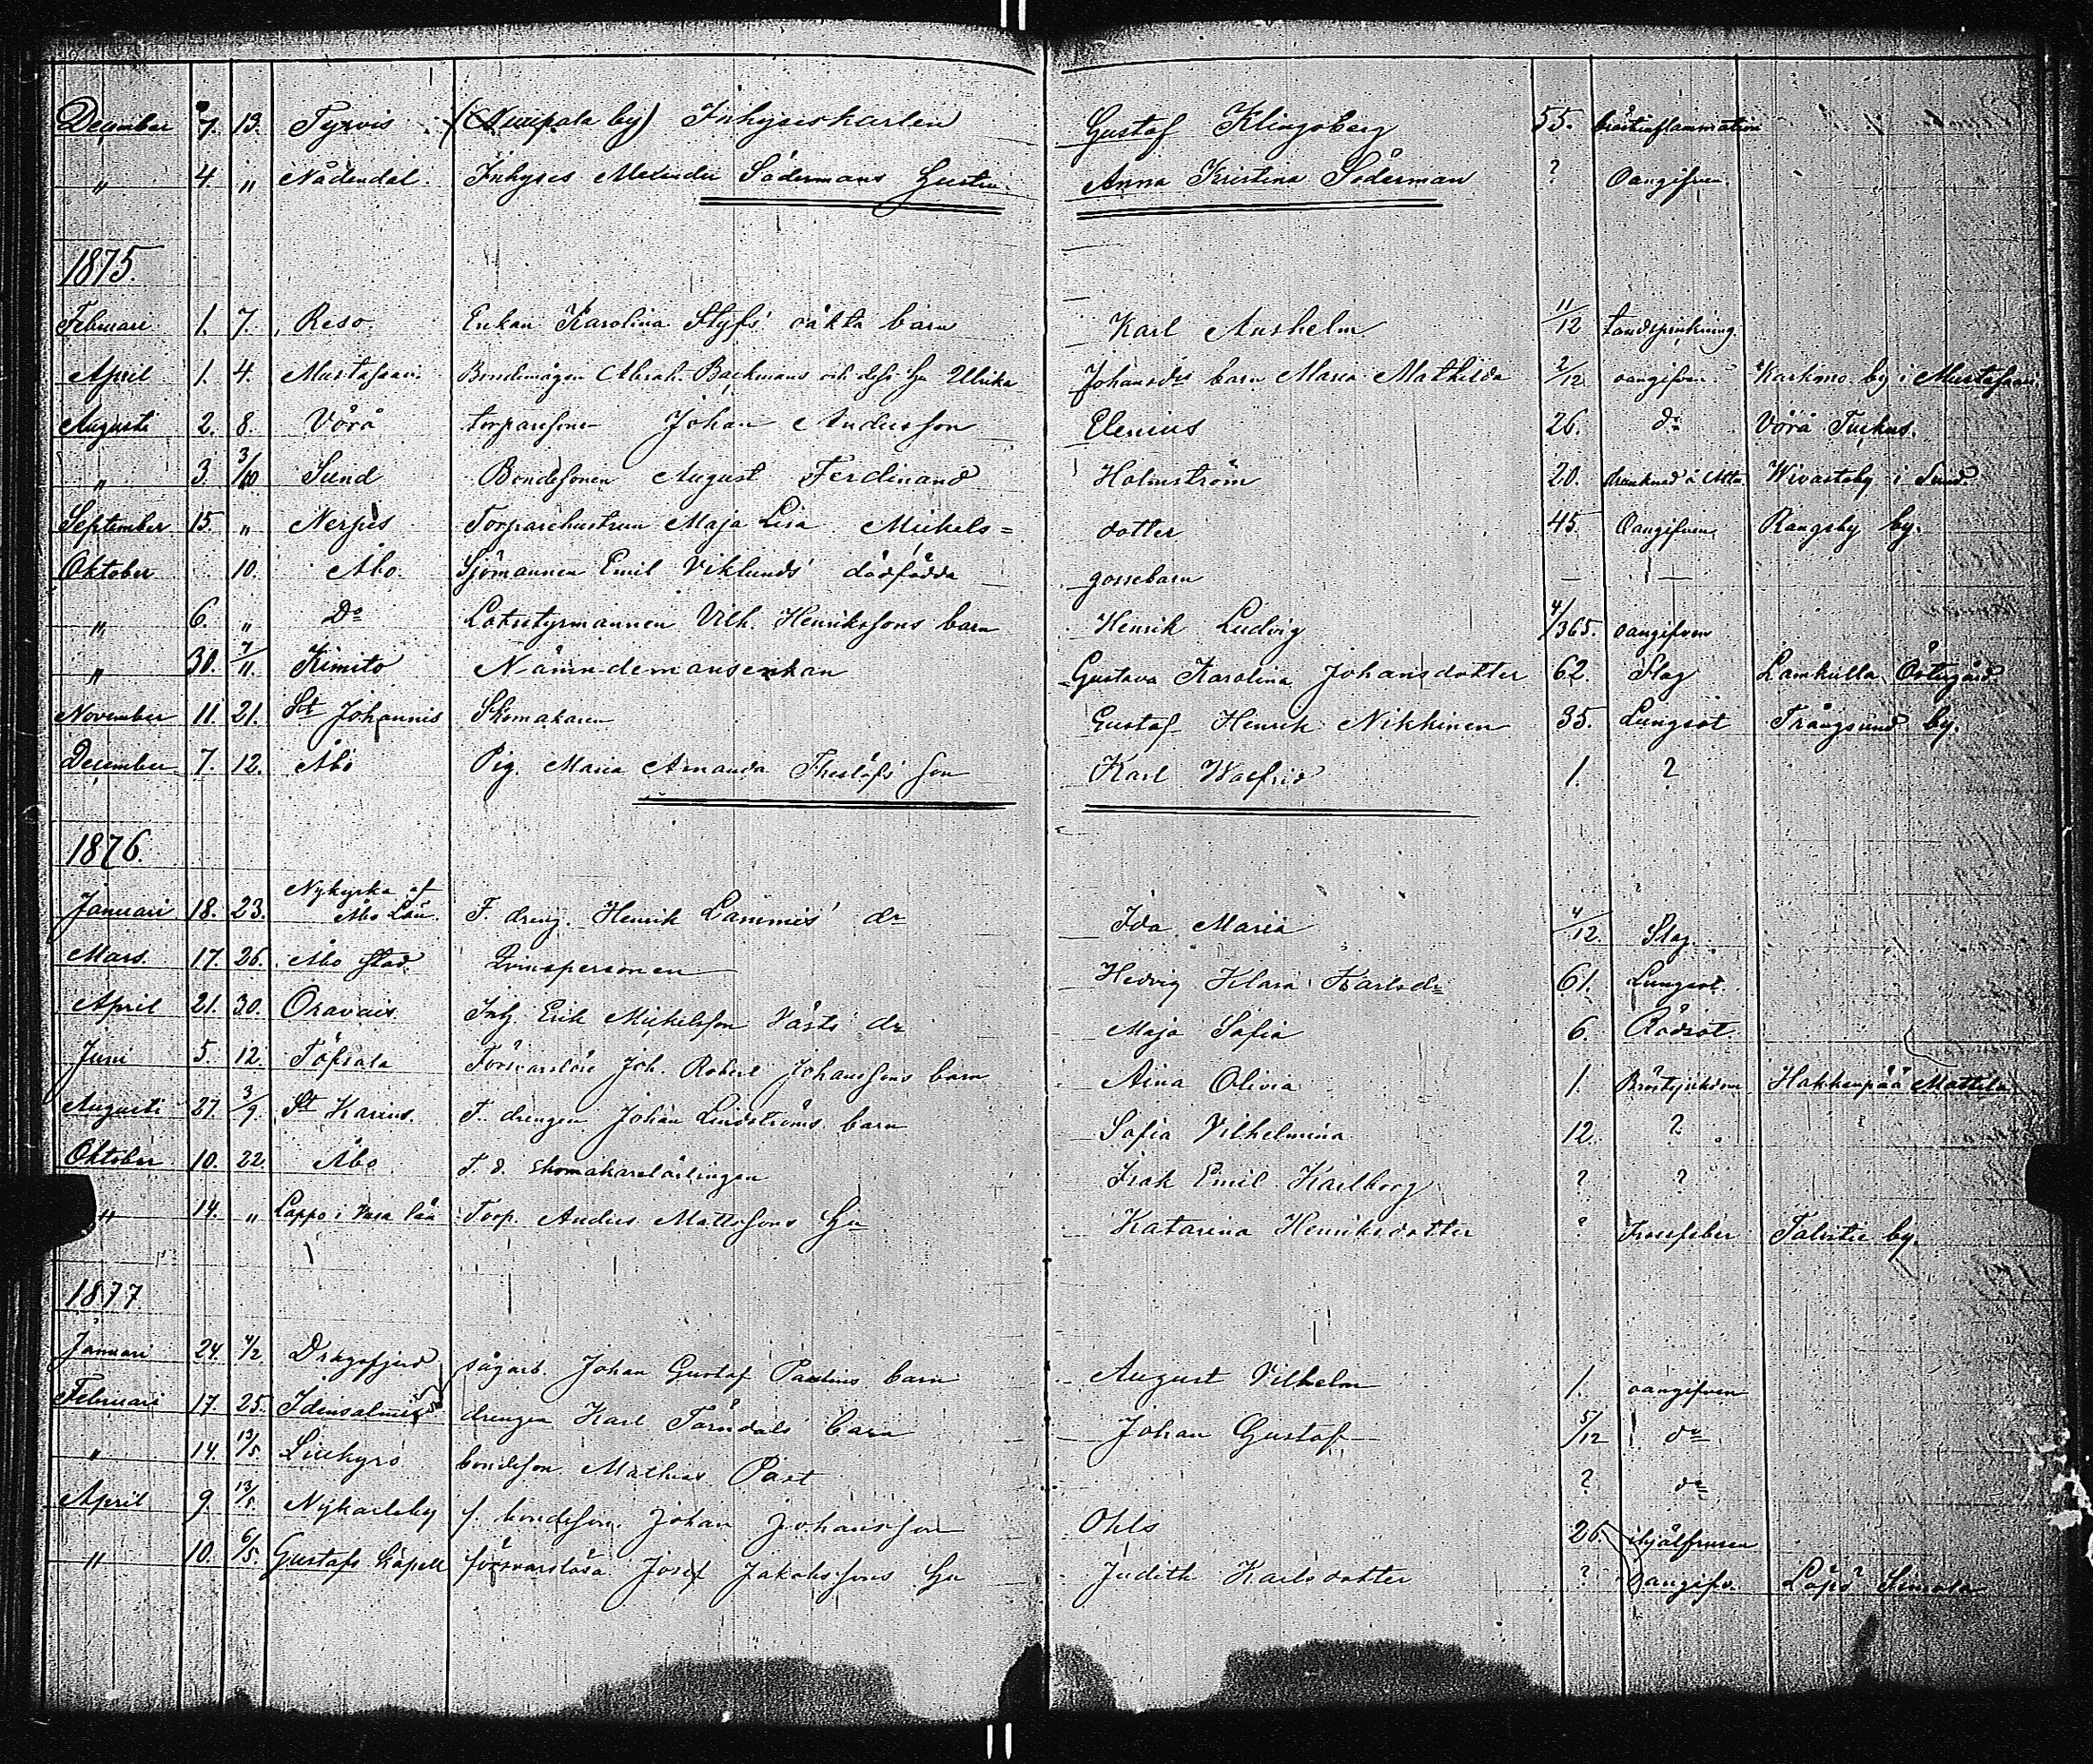 December 7. 13. Tyrvis (Nuupala by) Inhyseskarlen Gustaf Klingsberg 55. bröstinflammation
" 4. " Nådendal. Inhyses Alexander Södermans hustru Anna Kristina Söderman ? Oangifven.
1875.
Februari 1. 7. Reso. Enkan Karolina Styfs oäkta barn Karl Anshelm 11/12 tandsprickning
April 1. 4. Mustasaari. Bondemågen Abrah. Backmans och dess hu Ulrika Johansdrs barn Maria Mathilda 2/12 oangifven. Karkmo by i Mustasaari
Augusti 2. 8. Vörå torparesonen Johan Andersson Elenius 26. do Vörå Tuckus.
" 3. 3/10 Sund Bondesonen August Ferdinand Holmström 20. drunknad Wivasteby i Sund
September 15. " Nerpes Torparehustrun Maja Lisa Mickels= dotter 45. Oangifven Rangsby by.
Oktober 10. Åbo. Sjömannen Emil Viklunds dödfödda gossebarn — —
" 6. " Do Lotsstyrmannen Vilh. Henrikssons barn Henrik Ludvig 4/365. oangifven
" 30. 7/11. Kimito Nämndemansenkan Gustava Karolina Johansdotter 62. Slag Lamkulla Östergård
November 11. 21. St Johannis Skomakaren Gustaf Henrik Nikkinen 35. Lungsot Trångsund by.
December 7. 12. Åbo Pig. Maria Amanda Theslöfs son Karl Walfrid 1. ?
1876.
Januari 18. 23. Nykyrka af Åbo Län. F. dreng. Henrik Lammis' dr Ida Maria 4/12. Slag.
Mars. 17. 26. Åbo stad. Qvinspersonen Hedvig Klara Karlsdr 61. Lungsot.
April 21. 30. Oravais Inh. Erik Mickelsson Västs dr Maja Sofia 6. Rödsot.
Juni 5. 12. Töfsala Försvarslöse Joh. Robert Johanssons barn Aina Olivia 1. Bröstsjukdom Hakkenpää Mattila
Augusti 27. 3/9. St Karins. F. drengen Johan Lindströms barn Sofia Vilhelmina 12. ?
Oktober 10. 22. Åbo F. d. skomakarelärlingen Isak Emil Karlborg ? ?
" 14. " Lappo i Vasa län Torp. Anders Mattssons hu Katarina Henriksdotter ? Frossfeber Talistie by.
1877
Januari 24. 4/2 Dragsfjerd sågarb. Johan Gustaf Paulins barn August Vilhelm 1. oangifven
Februari 17. 25. Idensalmi drengen Karl Törndals barn Johan Gustaf 5/12 do
" 14. 13/5 Lillkyro bondeson Mathias Past ? do
April 9 13/5. Nykarleby f. bondeson. Johan Johansson Ohls 26. ihjälfrusen
" 10. 6/5. Gustafs kapell försvarslösa Josef Jakobssons hu Judith Karlsdotter ? Oangifv. Löpö Simola